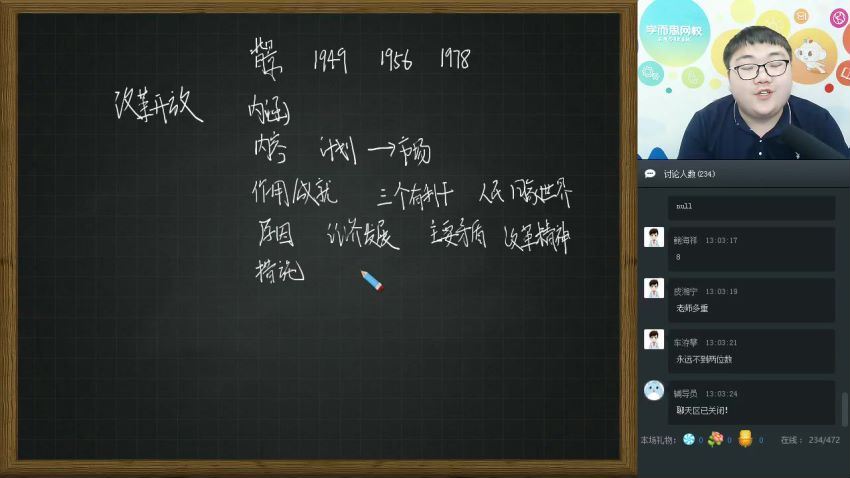 背景 1949 1956 1978
改革开放 内涵
内容 计划→市场
作用/成就 三个有利于 人民 国家 世界
原因 经济发展 主要矛盾 改革精神
措施
学而思网校
讨论人数(234)
null
鲍海祥 13:03:17
8
皮湘宁 13:03:19
老师多重
车浒擎 13:03:21
永远不到两位数
辅导员 13:03:24
聊天区已关闭!
本场礼物: 0 0 0 在线: 234/472